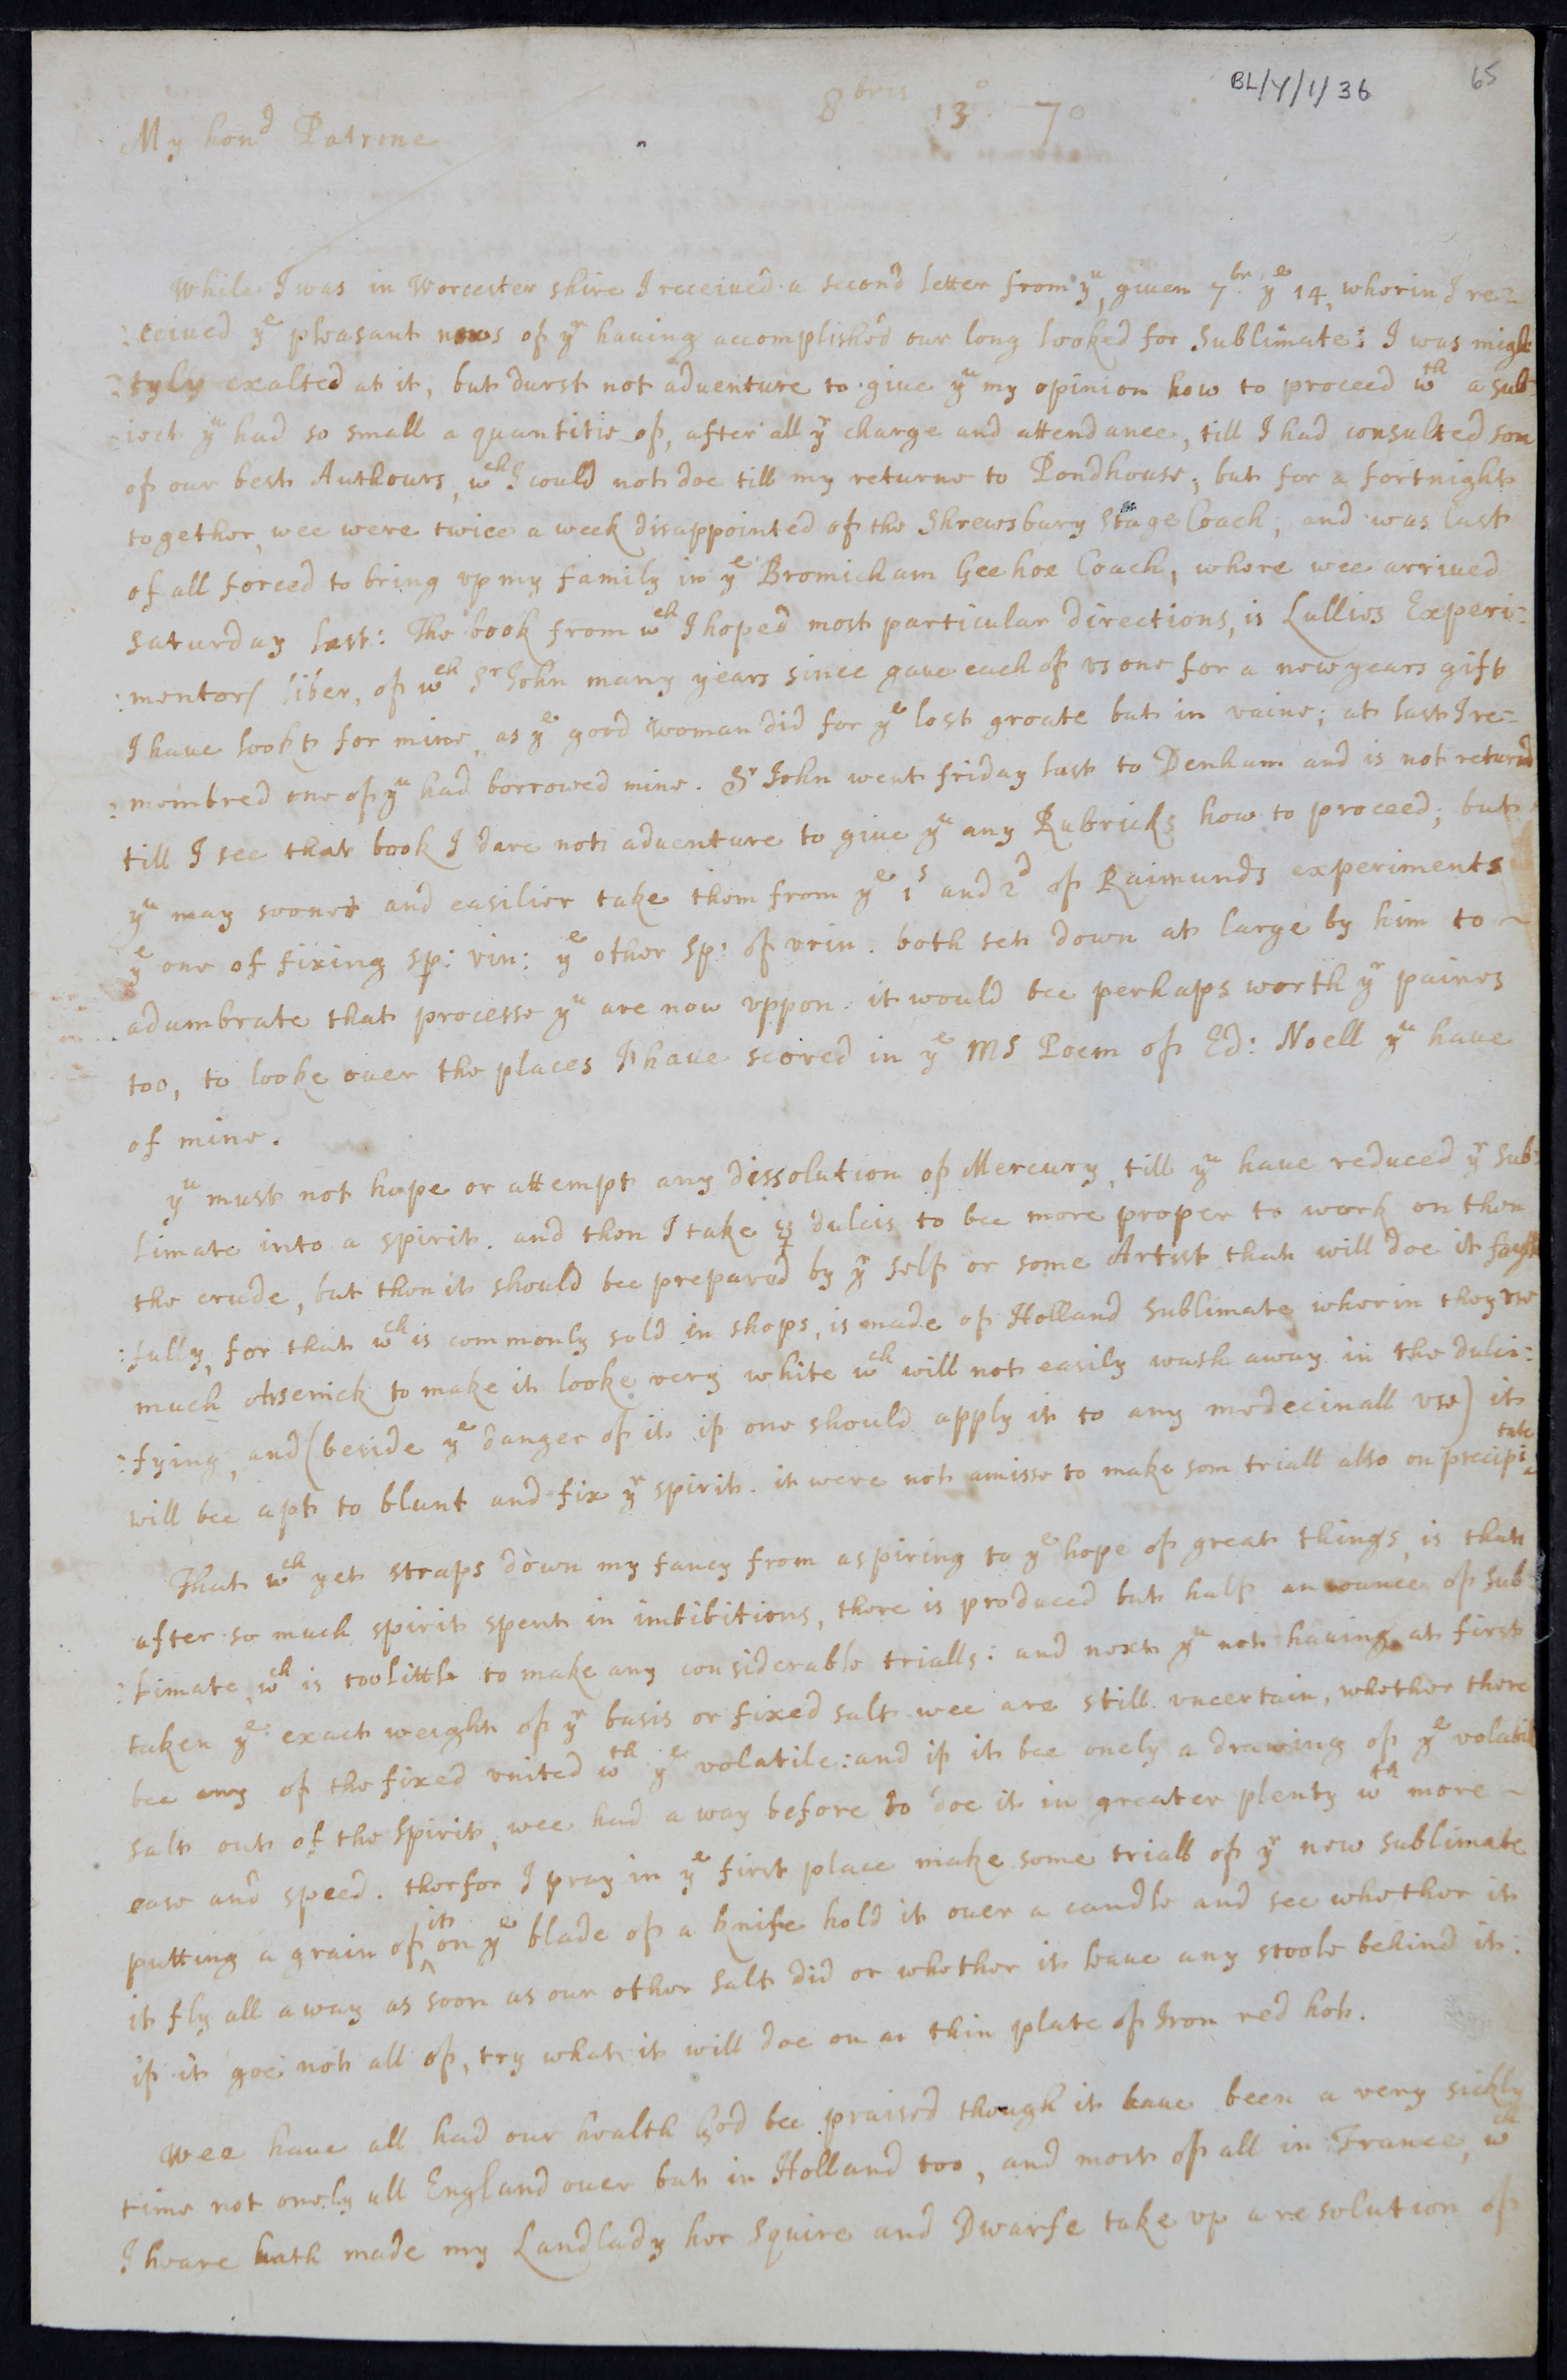 BL/Y/1/36 65
8bris 13° 70
My hond Patrone
While I was in Worcester shire I receiued a second letter from yu, giuen 7br ye 14, wherin I re=
:ceiued ye pleasant news of yr hauing accomplished our long looked for Sublimate: I was migh
=tyly exalted at it, but durst not aduenture to giue yu my opinion how to proceed wth a sub=
=iect yu had so small a quantitie of, after all yr charge and attendance, till I had consulted som
of our best Authours, wch I could not doe till my returne to Pondhouse; but for a fortnight
together, wee were twice a week disappointed of the Shrewsbury Stage Coach, and was last
of all forced to bring vp my family in ye Bromicham Geehoe Coach, where wee arriued
Saturday last: The book from wch I hoped most particular directions, is Lullies Experi=
:mentor liber, of wch Sr John many years since gaue each of vs one for a new years gift
I haue lookt for mine, as ye good woman did for ye lost groate but in vaine; at last I re=
:membred one of yu had borrowed mine. Sr John went friday last to Denham and is not returnd
till I see that book I dare not aduenture to giue yu any Rubricks how to proceed; but
yu may sooner and easilier take them from ye 1s and 2d of Raimunds experiments
ye one of fixing sp: vin: ye other Sp: of vrin. both set down at large by him to ~
adumbrate that processe yu are now vppon. it would bee perhaps worth yr paines
too, to looke ouer the places I haue scored in ye MS Poem of Ed: Noell yu have
of mine.
yu must not hope or attempt any dissolution of Mercury, till yu haue reduced yr Sub=
limate into a spirit. and then I take ☿ dulcis to bee more proper to work on then
the crude, but then it should bee prepared by yr self or some Artist that will doe it faith
:fully, for that wch is commonly sold in shops, is made of Holland Sublimate wherin they vse
much arsenick to make it looke very white wch will not easily wash away in the dulci=
:fying, and (beside ye danger of it if one should apply it to any medecinall vse) it
will bee apt to blunt and fix yr spirit. it were not amisse to make som triall also on precipi
tate
That wch yet straps down my fancy from aspiring to ye hope of great things, is that
after so much spirit spent in imbibitions, there is produced but half an ounce of Sub=
:limate, wch is too little to make any considerable trialls: and next yu not hauing at first
taken ye exact weight of yr basis or fixed salt wee are still vncertain, whether there
bee any of the fixed vnited wth ye volatile: and if it bee onely a drawing of ye volatil
salt out of the Spirit, wee had a way before to doe it in greater plenty wth more ~
ease and speed. therfor I pray in ye first place make some triall of yr new sublimate
putting a grain of it on ye blade of a knife hold it ouer a candle and see whether it
it fly all away as soon as our other Salt did or whether it leaue any stoole behind it:
if it goe not all of, try what it will doe on an thin plate of Iron red hot.
Wee haue all had our health God bee praised though it haue been a very sickly
time not onely all England ouer but in Holland too, and most of all in France, wch
I heare hath made my Landlady her Squire and Dwarfe take vp a resolution of